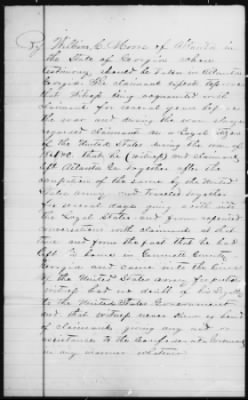 By William C. Moore of Atlanta in
the State of Georgia whose
testimony should be taken in Atlanta
Georgia The claimant expects to prove
that witness being acquainted with
claimant for several years before
the war and during the war always
regarded claimant as a loyal citizen
of the United States during the war of
that he (witness) and claimant
left Atlanta Ga together after the
occupation of the same by the United
States army and traveled together
for several days going north into
the Loyal States and from repeated
conversations with claimant at that
time and from the fact that he had
left his home in County
Georgia and came into the lines
of the United States army for protection
witness had no doubt of his loyalty
to the United States Government
and that witness never knew or heard
of claimant giving any aid or
assistance to the Confederate Government
in any manner whatever